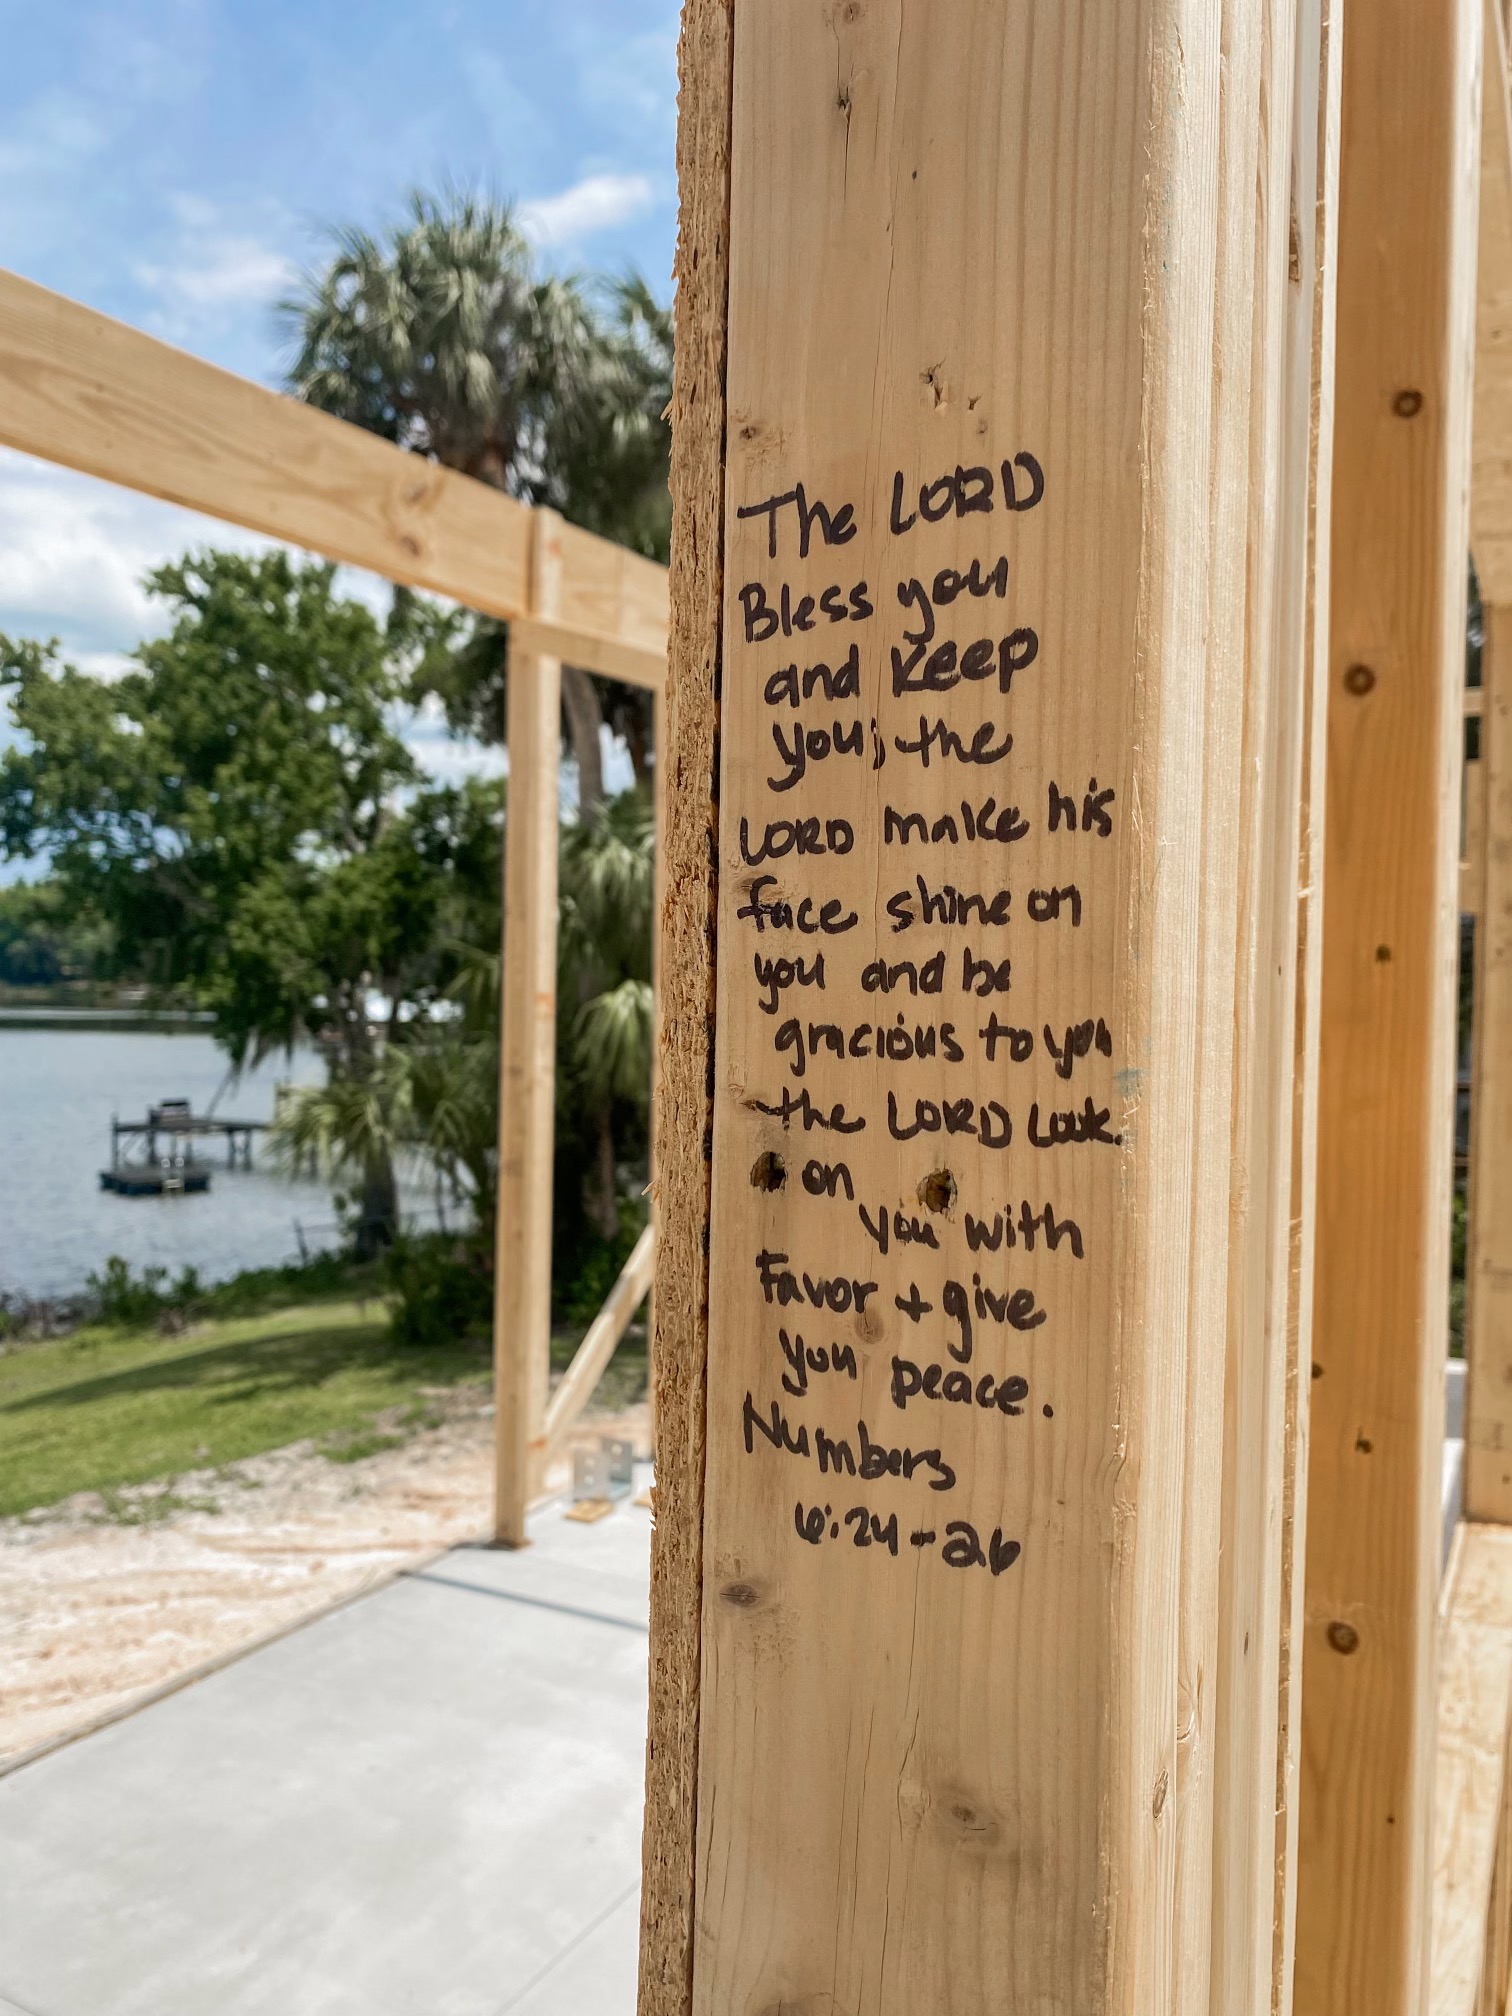 The LORD
Bless you
and keep
you; the
LORD make his
face shine on
you and be
gracious to you
the LORD Look
on
you with
Favor + give
you peace.
Numbers
6:24-26